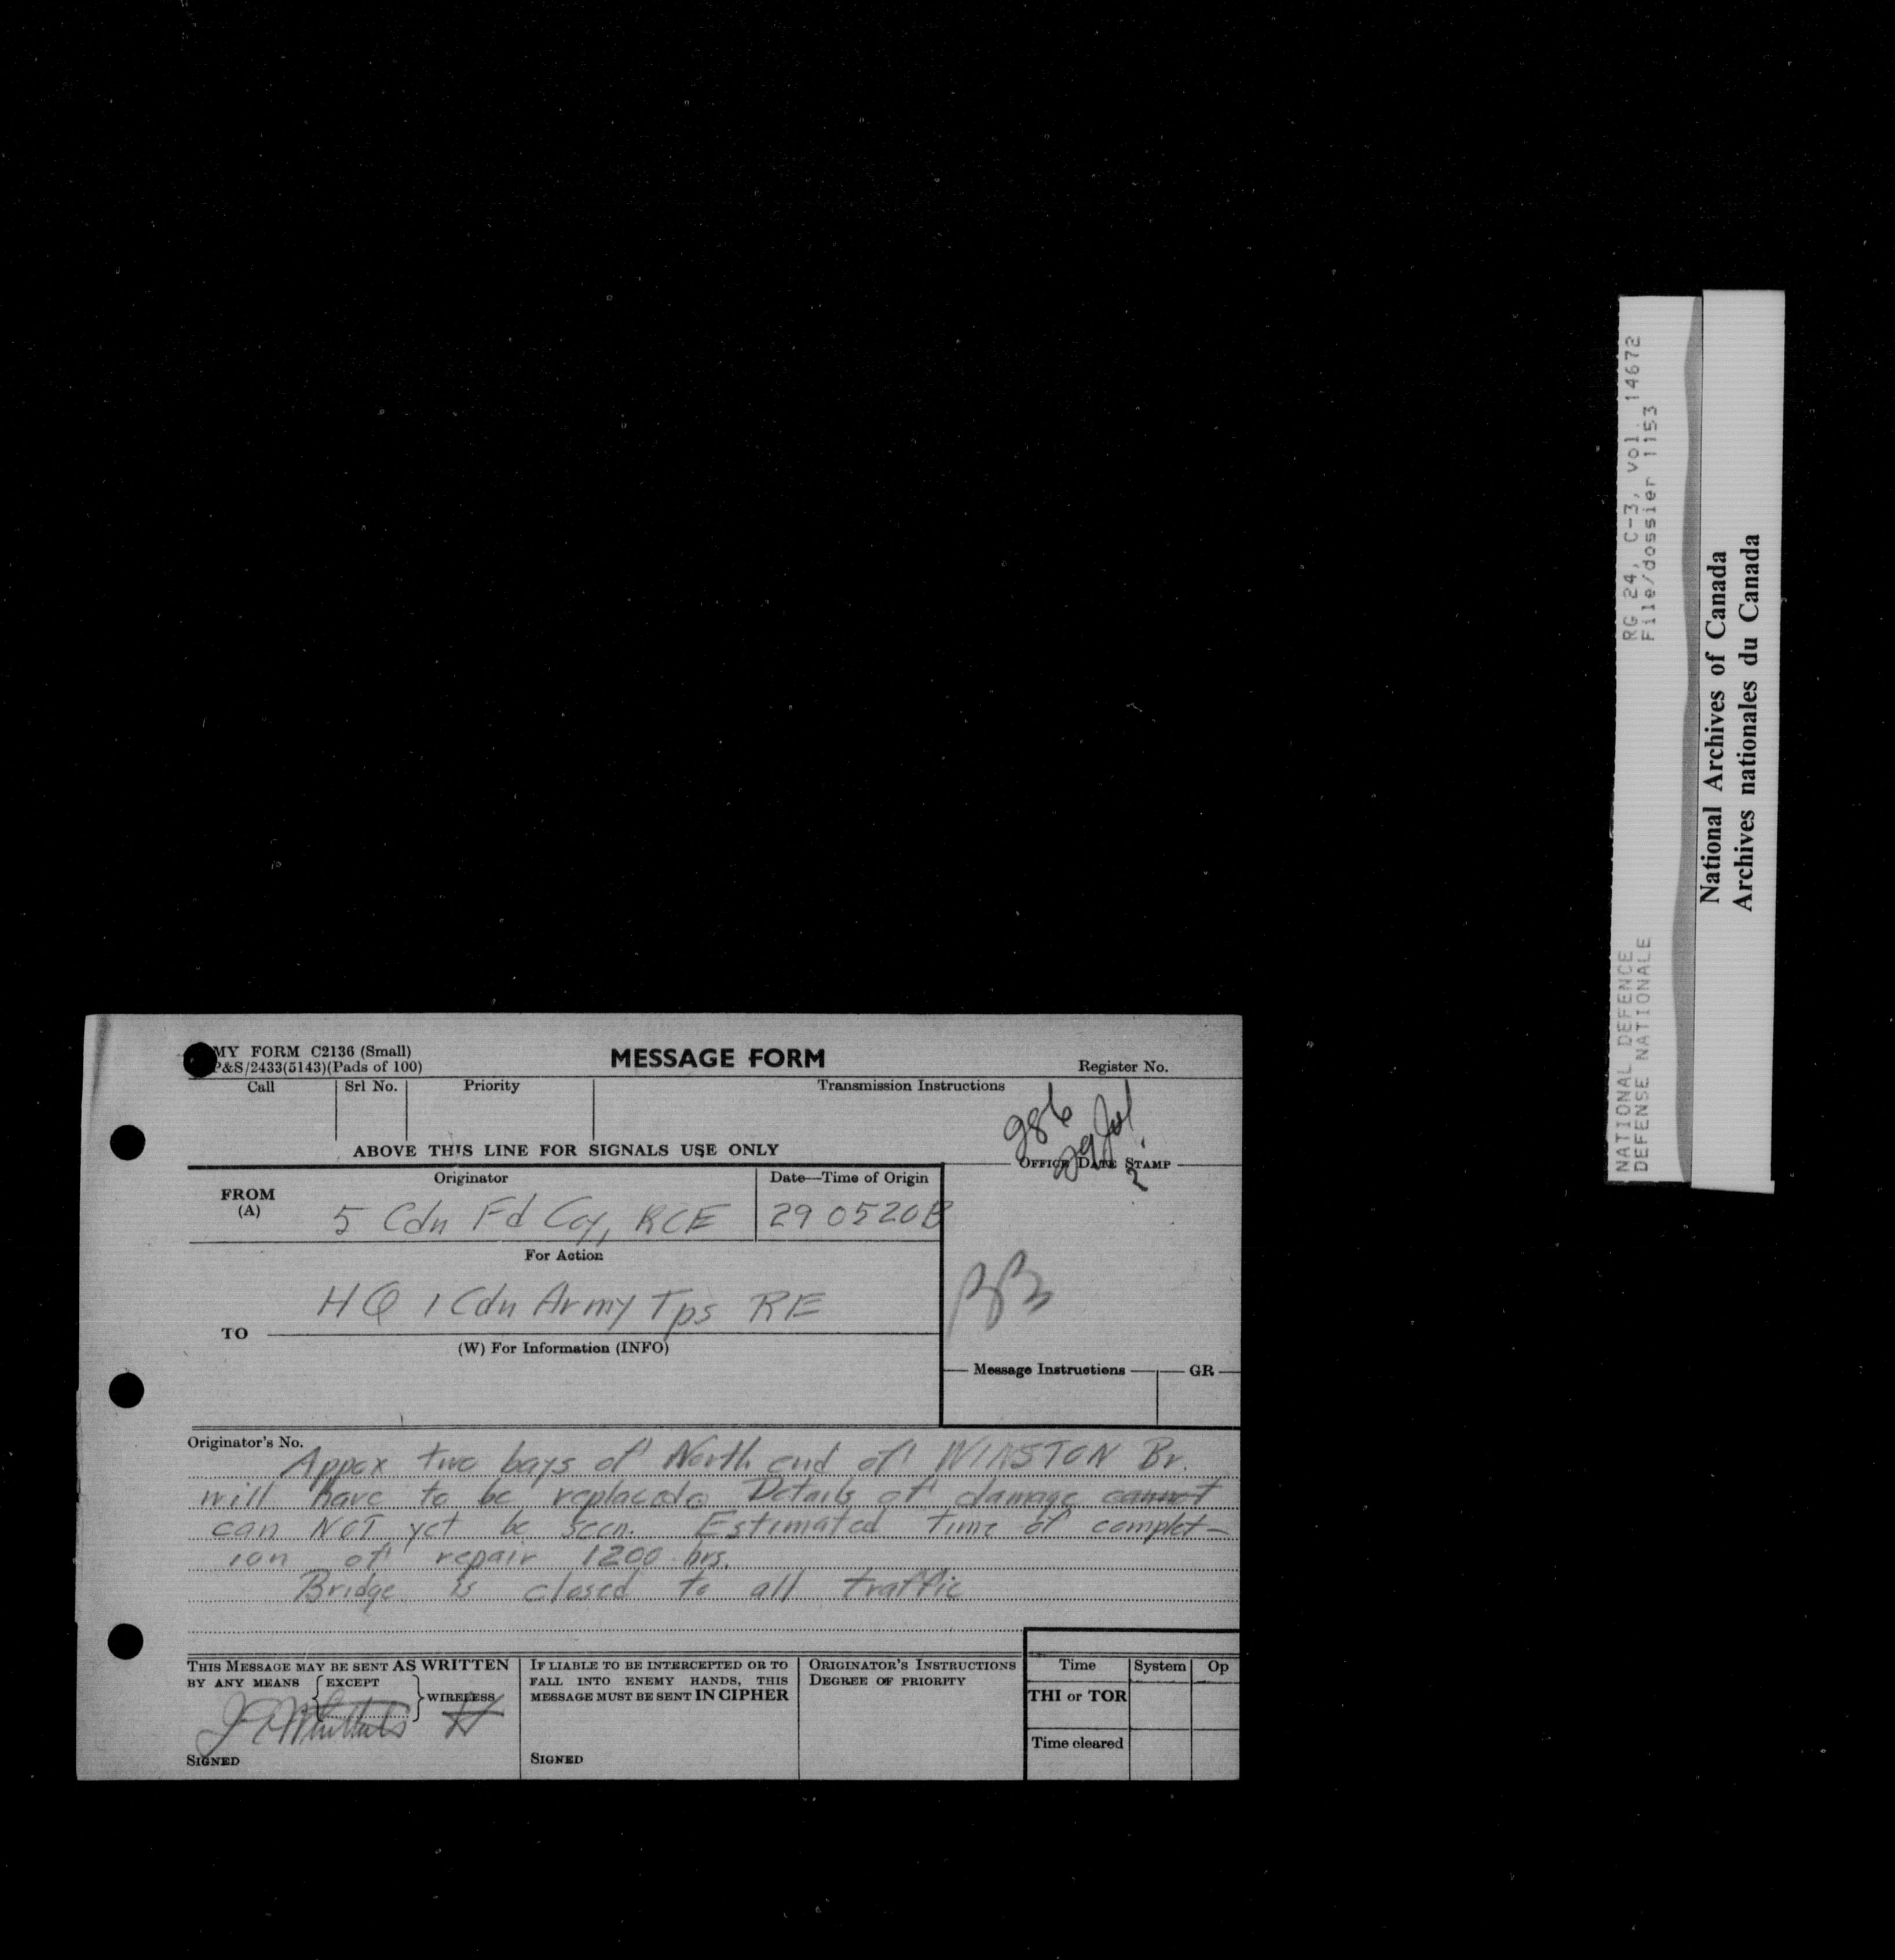 MY FORM C2136 (Small)
P&S/2433(5143)(Pads of 100)
MESSAGE FORM
Register No.
Call
Srl No.
Priority
Transmission Instructions
ABOVE THIS LINE FOR SIGNALS USE ONLY
986
29 Jul
OFFICE DATE STAMP
2
FROM
(A)
Originator
Date—Time of Origin
5 Cdn Fd Coy, RCE
29 0520B
For Action
HQ 1 Cdn Army Tps RE
TO
(W) For Information (INFO)
Message Instructions
GR
Originator's No.
Appox two bays of North end of WINSTON Br.
will have to be replaced. Details of damage cannot
can NOT yet be seen. Estimated time of complet-
ion of repair 1200 hrs.
Bridge is closed to all traffic
THIS MESSAGE MAY BE SENT AS WRITTEN
BY ANY MEANS
EXCEPT
WIRELESS
SIGNED
IF LIABLE TO BE INTERCEPTED OR TO
FALL INTO ENEMY HANDS, THIS
MESSAGE MUST BE SENT IN CIPHER
SIGNED
ORIGINATOR'S INSTRUCTIONS
DEGREE OF PRIORITY
Time
System
Op
THI or TOR
Time cleared
NATIONAL DEFENCE
DEFENSE NATIONALE
RG 24, C-3, vol. 14672
File/dossier 1153
National Archives of Canada
Archives nationales du Canada